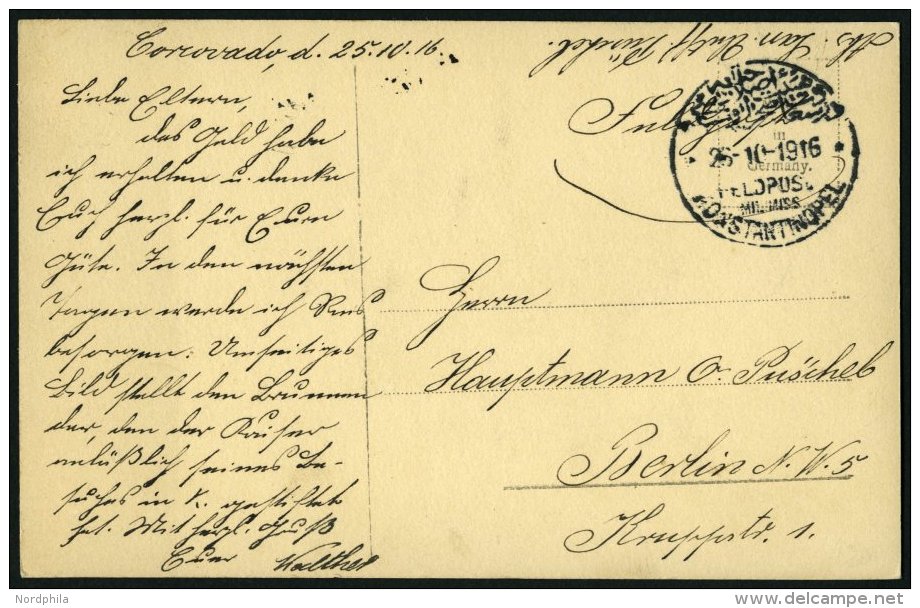 Corcovado, d. 25.10.16.
Liebe Eltern,
das Geld habe
ich erhalten u. danke
Euch herzl. für Eure
Güte. In den nächsten
Tagen werde ich
besorgen. Umseitiges
Bild stellt den Brunnen
dar, den der Kaiser
anläßlich seines Be-
suches in K. gestiftet
hat. Mit herzl. Gruß
Euer Walther
Germany.
25-10-1916
FELDPOST
MIL. MISS.
KONSTANTINOPEL
Herrn
Hauptmann O. Püschel
Berlin N.W.5
Kruppstr. 1.
Nordphila
www.delcampe.net